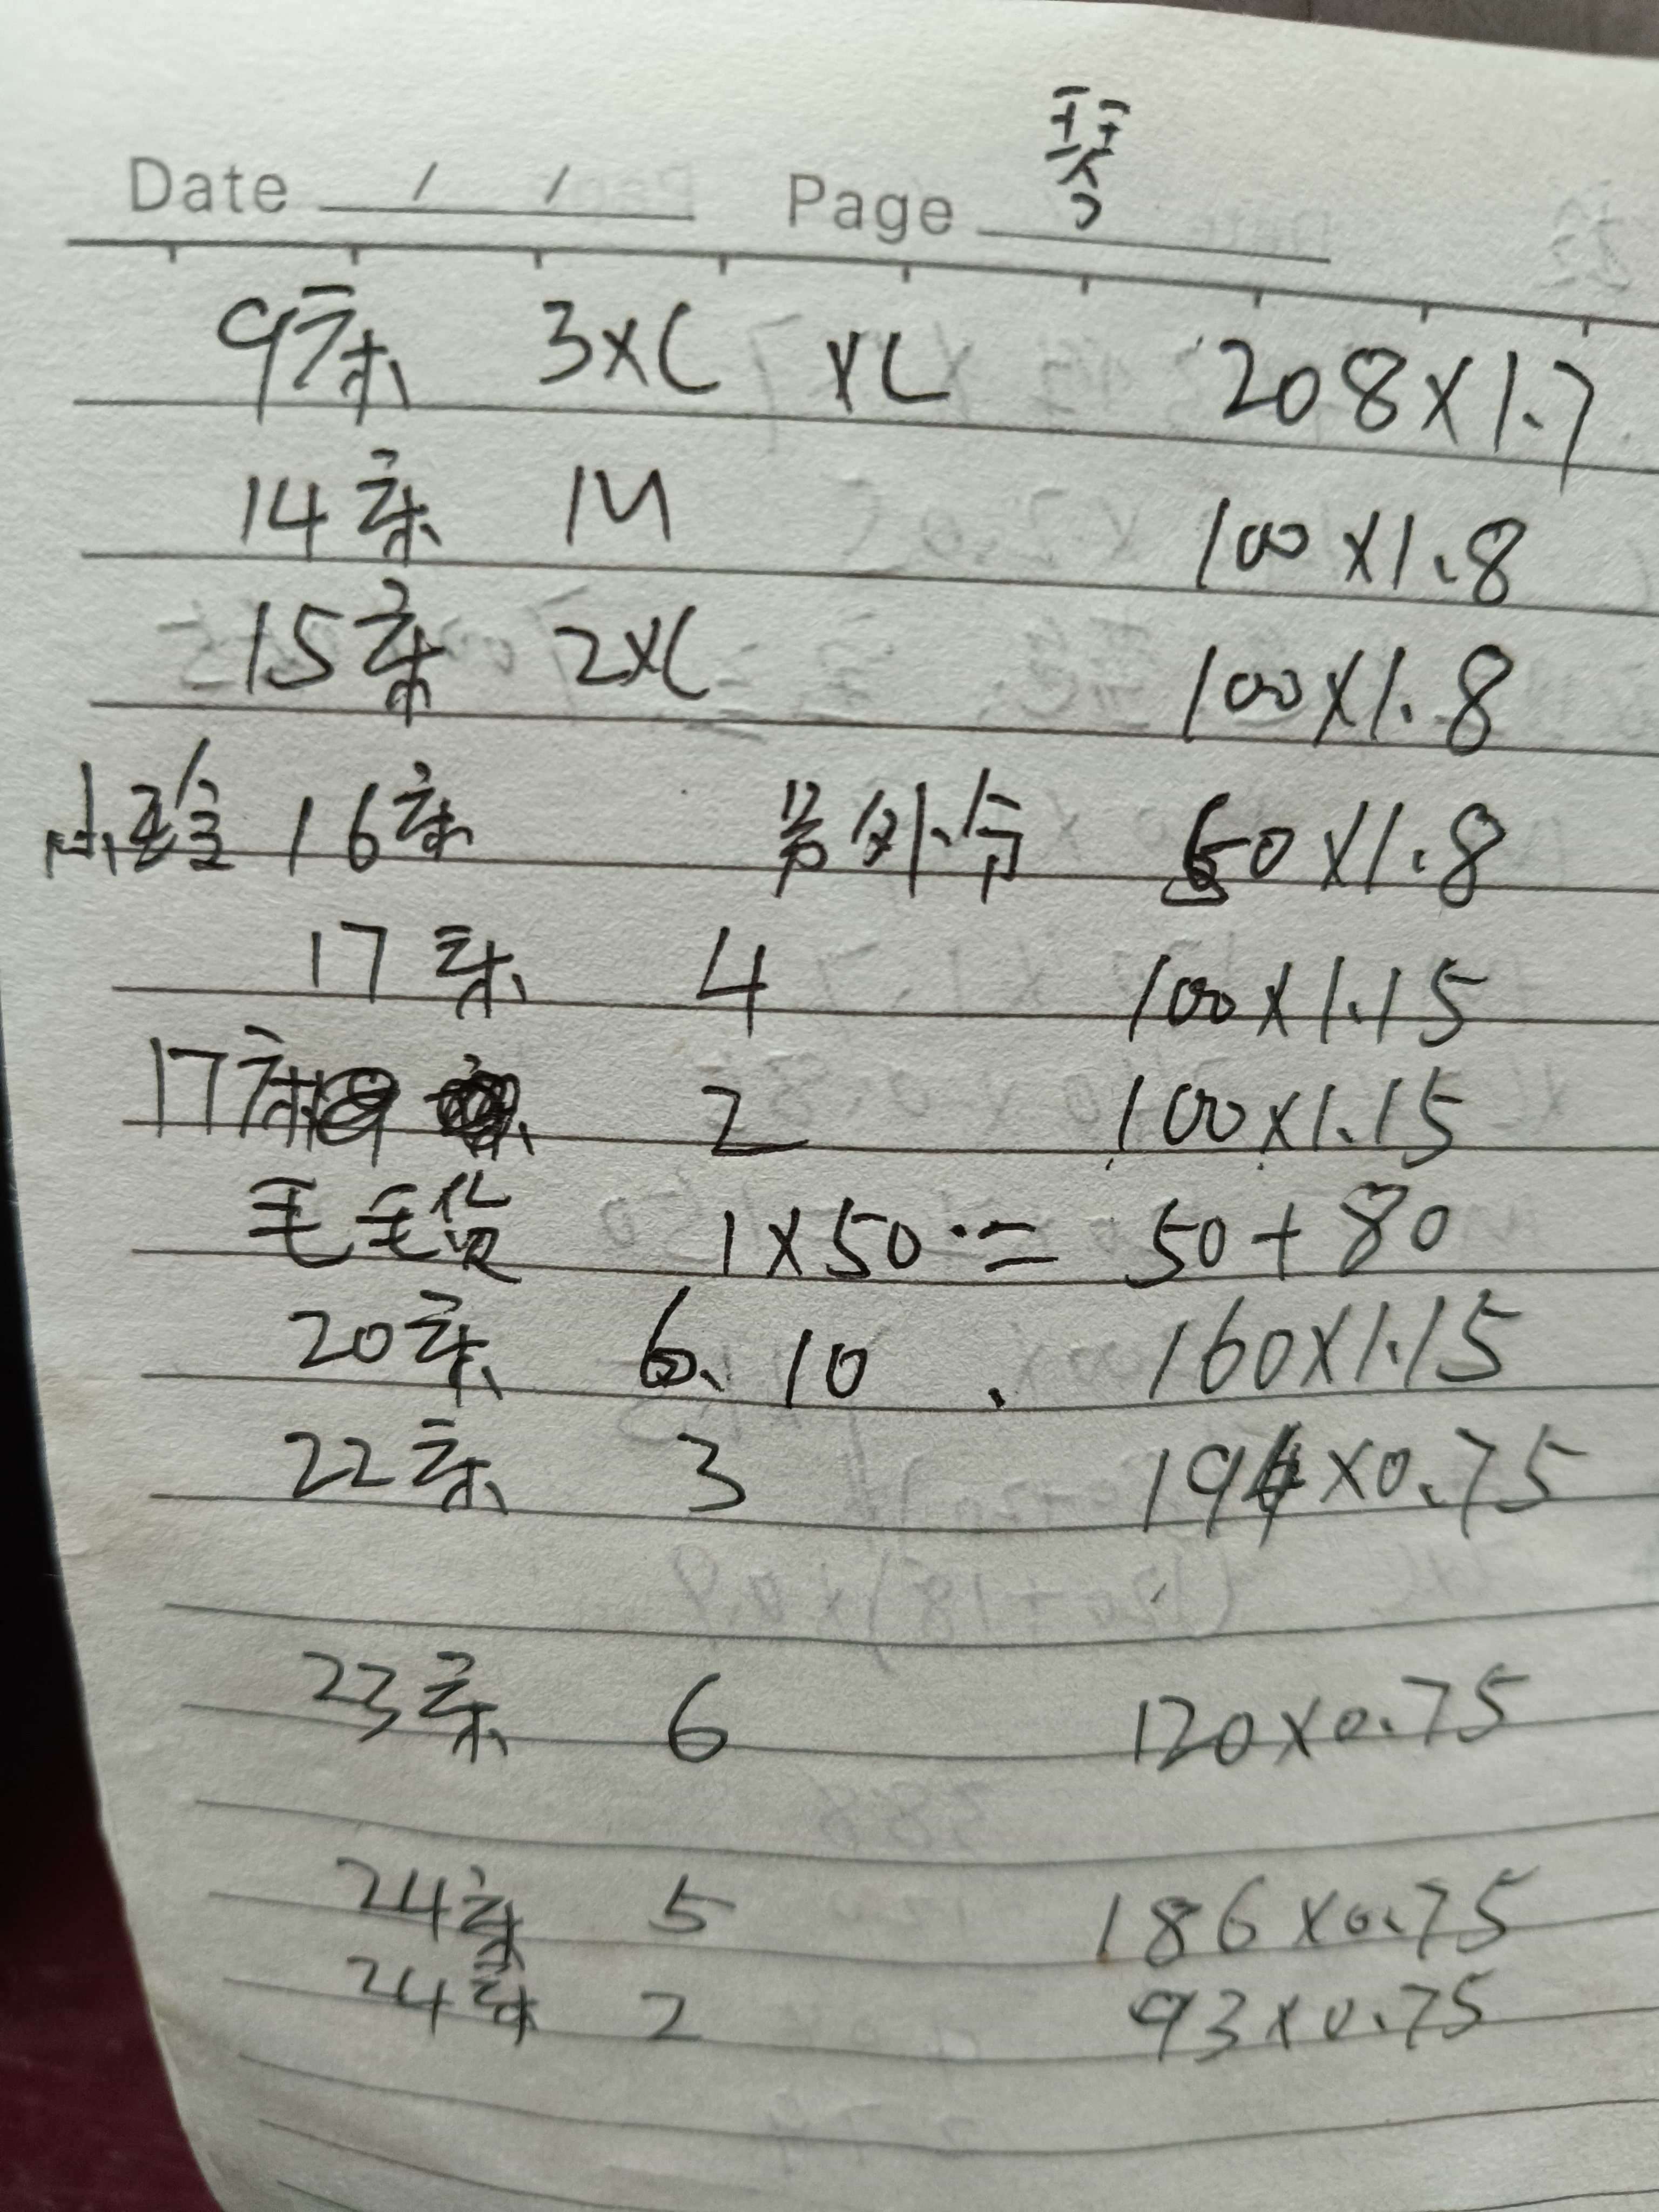 琴
Date / / Page
9床 3XL XL 208×1.7
14床 M 100×1.8
15床 2XL 100×1.8
16床 50×1.8
17床 4 100×1.15
17床 2 100×1.15
毛毛货 1×50= 50+80
20床 6、10 160×1.15
22床 3 194×0.75
23床 6 120×0.75
24床 5 186×0.75
24床 2 93×0.75